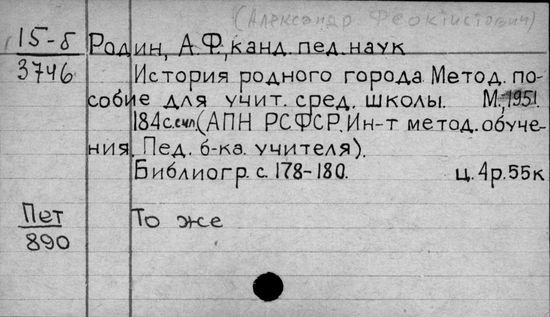 (Александр Феоктистович)
15-5 Родин, А.Ф., канд. пед. наук
3746 История родного города. Метод. по-
собие для учит. сред. школы. М., 1951.
184 с. с ил. (АПН РСФСР. Ин-т метод. обуче-
ния. Пед. б-ка учителя).
Библиогр. с. 178-180. ц. 4 р. 55 к
Пет То же
890